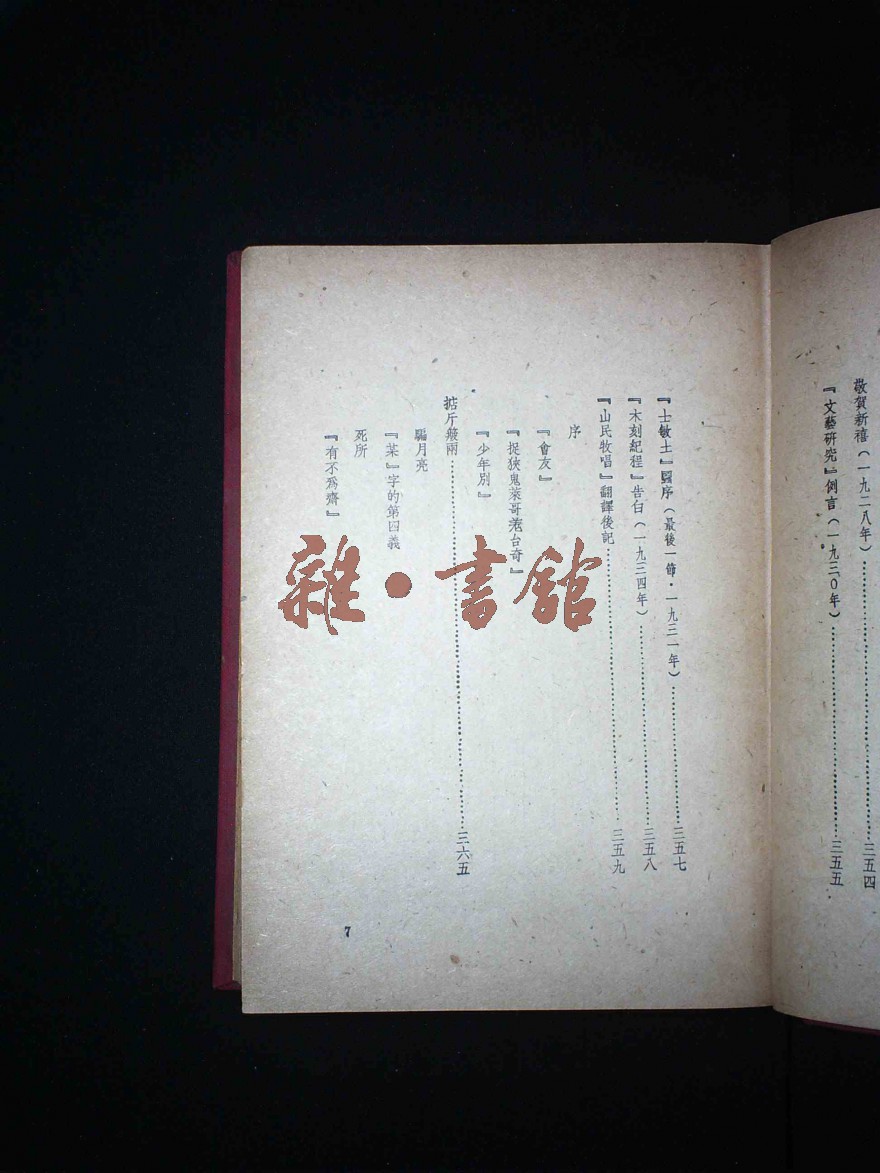 敬賀新禧(一九二八年)……三五四
『文藝研究』例言(一九三〇年)……三五五
『士敏土』圖序(最後一節·一九三一年)……三五七
『木刻紀程』告白(一九三四年)……三五八
『山民牧唱』翻譯後記……三五九
序
『會友』
『捉狹鬼萊哥羌台奇』
『少年別』
掂斤簸兩……三六五
騙月亮
『某』字的第四義
死所
『有不爲齋』
7
雜·書館